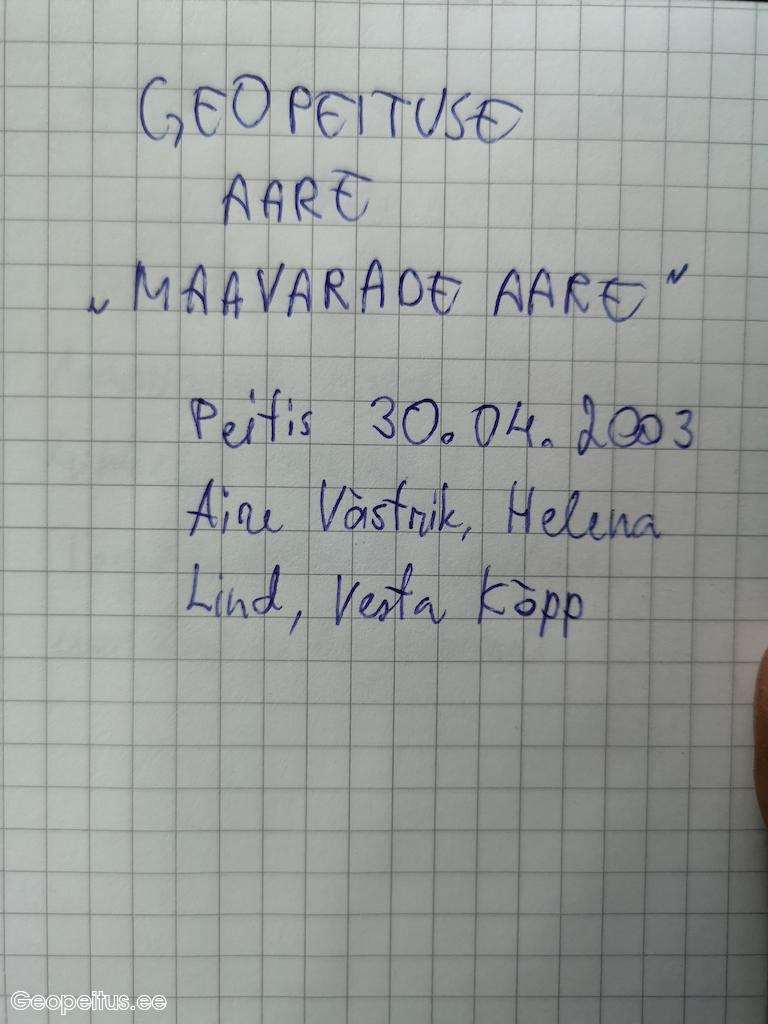 GEOPEITUSE
AARE
„MAAVARADE AARE"
Peitis 30.04.2003
Aire Västrik, Helena
Lind, Vesta Kõpp
Geopeitus.ee